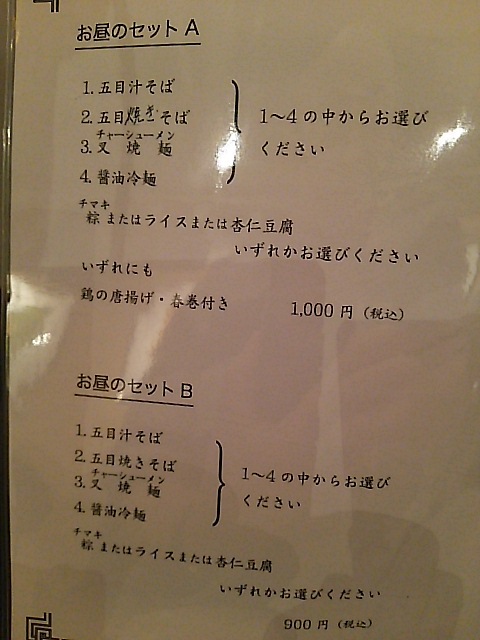 お昼のセット A
1. 五目汁そば
2. 五目焼きそば
チャーシューメン
3. 叉焼麺
4. 醤油冷麺
1〜4 の中からお選び
ください
チマキ
粽 またはライスまたは杏仁豆腐
いずれかお選びください
いずれにも
鶏の唐揚げ・春巻付き
1,000 円 (税込)
お昼のセット B
1. 五目汁そば
2. 五目焼きそば
チャーシューメン
3. 叉焼麺
4. 醤油冷麺
1〜4 の中からお選び
ください
チマキ
粽 またはライスまたは杏仁豆腐
いずれかお選びください
900 円 (税込)